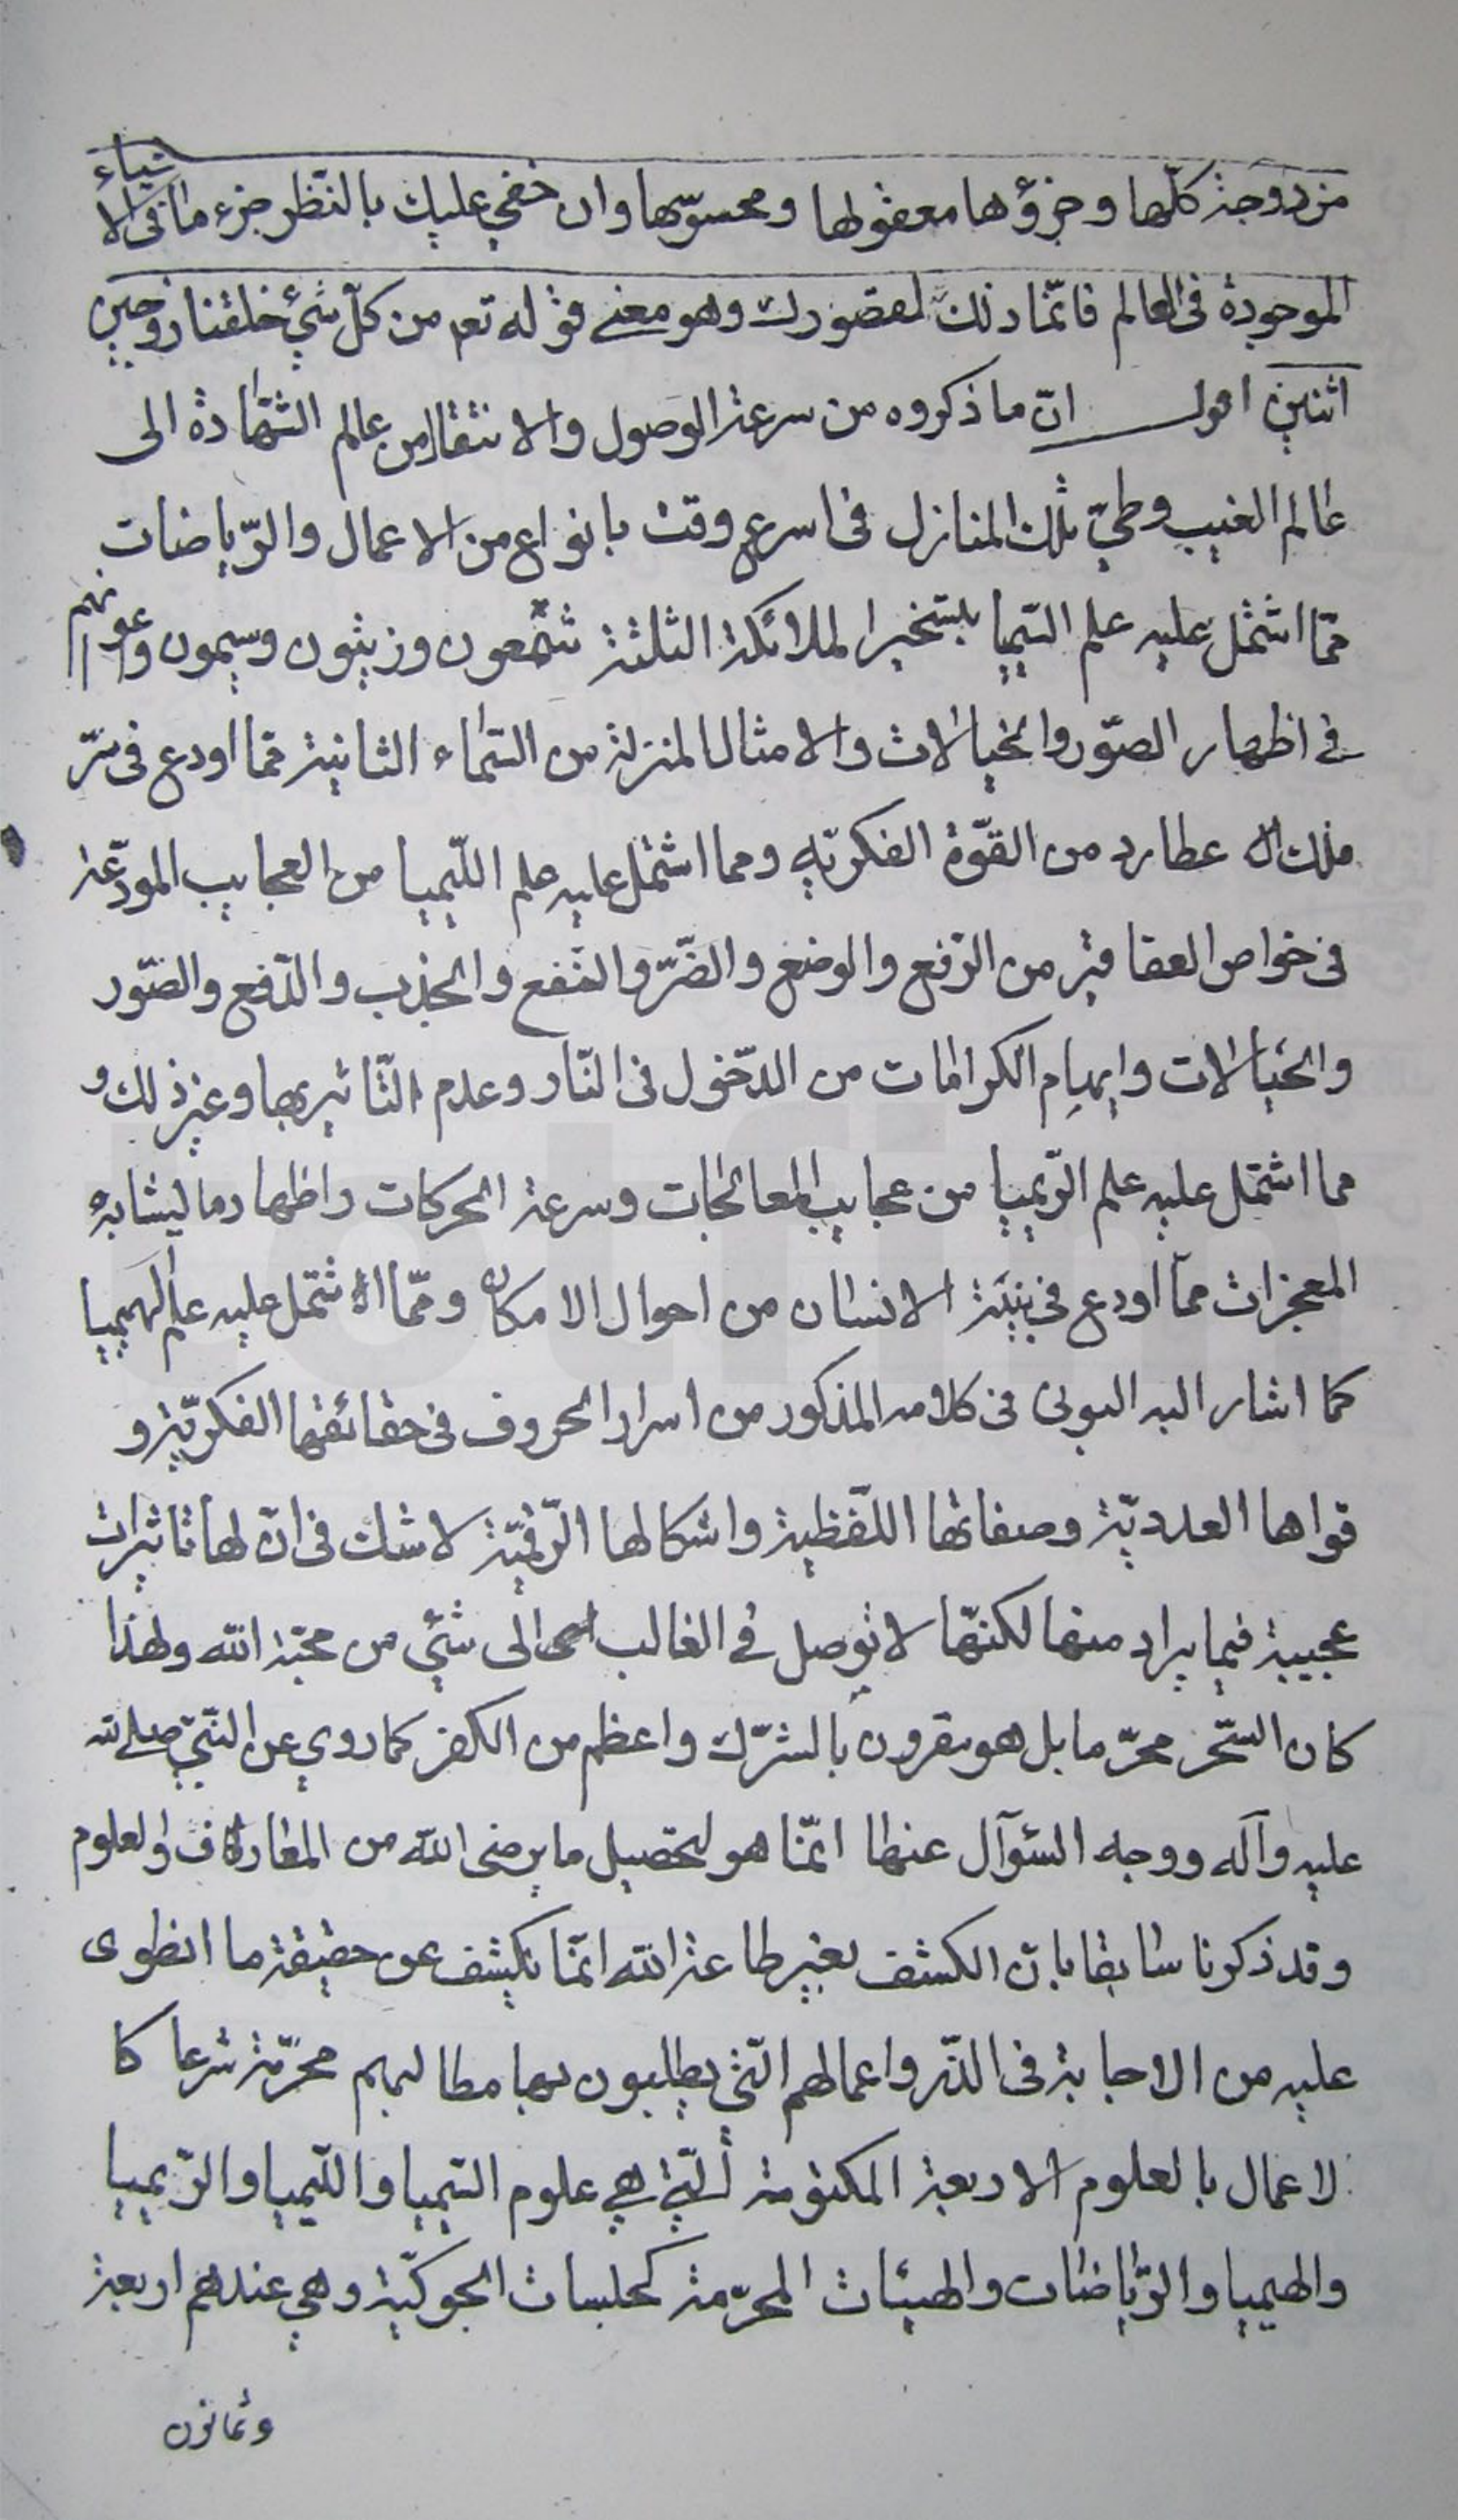 مزدوجة كلّها وجزؤها معقولها ومحسوسها وان خفي عليك بالنّظر جزء ما فى الاشياء
الموجودة فى العالم فانّما ذلك لقصورك وهو معنى قوله تع من كلّ شئ خلقنا زوجين
اثنين اقول انّ ما ذكروه من سرعة الوصول والانتقال من عالم الشّهادة الى
عالم الغيب وطيّ تلك المنازل فى اسرع وقت بانواع من الاعمال والرّياضات
ممّا اشتمل عليه علم السّيميا بتسخير الملائكة الثلثة شمعون وزيثون وسيمون واعوانهم
في اظهار الصّور والخيالات والامثال المنزلة من السّماء الثانية ممّا اودع فى سرّ
فلك عطارد من القوّة الفكريّه ومما اشتمل عليه علم اللّيميا من العجايب المودعة
فى خواص العقاقير من الرّفع والوضع والضّرّ والنّفع والجذب والدّفع والصّور
والخيالات وايهام الكرامات من الدّخول فى النّار وعدم التّاثير بها وغير ذلك و
مما اشتمل عليه علم الرّيميا من عجايب المعالجات وسرعة الحركات واظهار ما يشابه
المعجزات ممّا اودع في بنية الانسان من احوال الامكان وممّا اشتمل عليه علم الهيميا
كما اشار اليه البونى فى كلامه المذكور من اسرار الحروف فى حقائقها الفكريّة و
قواها العدديّة وصفاتها اللّفظية واشكالها الرّقميّة لا شك فى انّ لها تاثيرات
عجيبة فيما يراد منها لكنّها لا توصل في الغالب الى شئ من محبّة الله ولهذا
كان السّحر محرّما بل هو مقرون بالشّرك واعظم من الكفر كما روي عن النّبيّ صلى الله
عليه وآله ووجه السّؤآل عنها انّما هو لتحصيل ما يرضى الله من المعارف والعلوم
وقد ذكرنا سابقا بانّ الكشف بغير طاعة الله انّما يكشف عن حقيقة ما انطوى
عليه من الاجابة فى الذّر واعمالهم الّتي يطلبون بها مطالبهم محرّمة شرعا كا
لاعمال بالعلوم الاربعة المكتومة الّتي هي علوم السّيميا واللّيميا والرّيميا
والهيميا والرّياضات والهيئات المحرّمة كجلسات الجوكيّة وهي عندهم اربعة
وثمانون